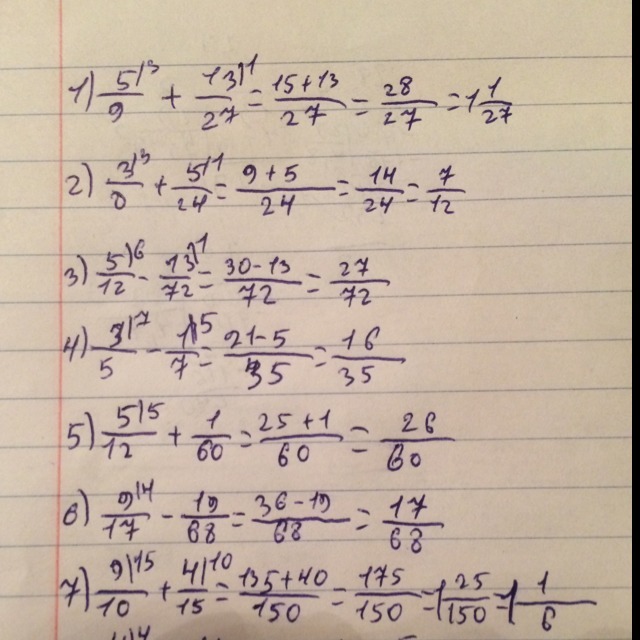 1) 5/9 |3 + 13/27 |1 = 15+13/27 = 28/27 = 1 1/27
2) 3/8 |3 + 5/24 |1 = 9+5/24 = 14/24 = 7/12
3) 5/12 |6 - 13/72 |1 = 30-13/72 = 27/72
4) 3/5 |7 - 1/7 |5 = 21-5/35 = 16/35
5) 5/12 |5 + 1/60 = 25+1/60 = 26/60
6) 9/17 |4 - 19/68 = 36-19/68 = 17/68
7) 9/10 |15 + 4/15 |10 = 135+40/150 = 175/150 = 1 25/150 = 1 1/6